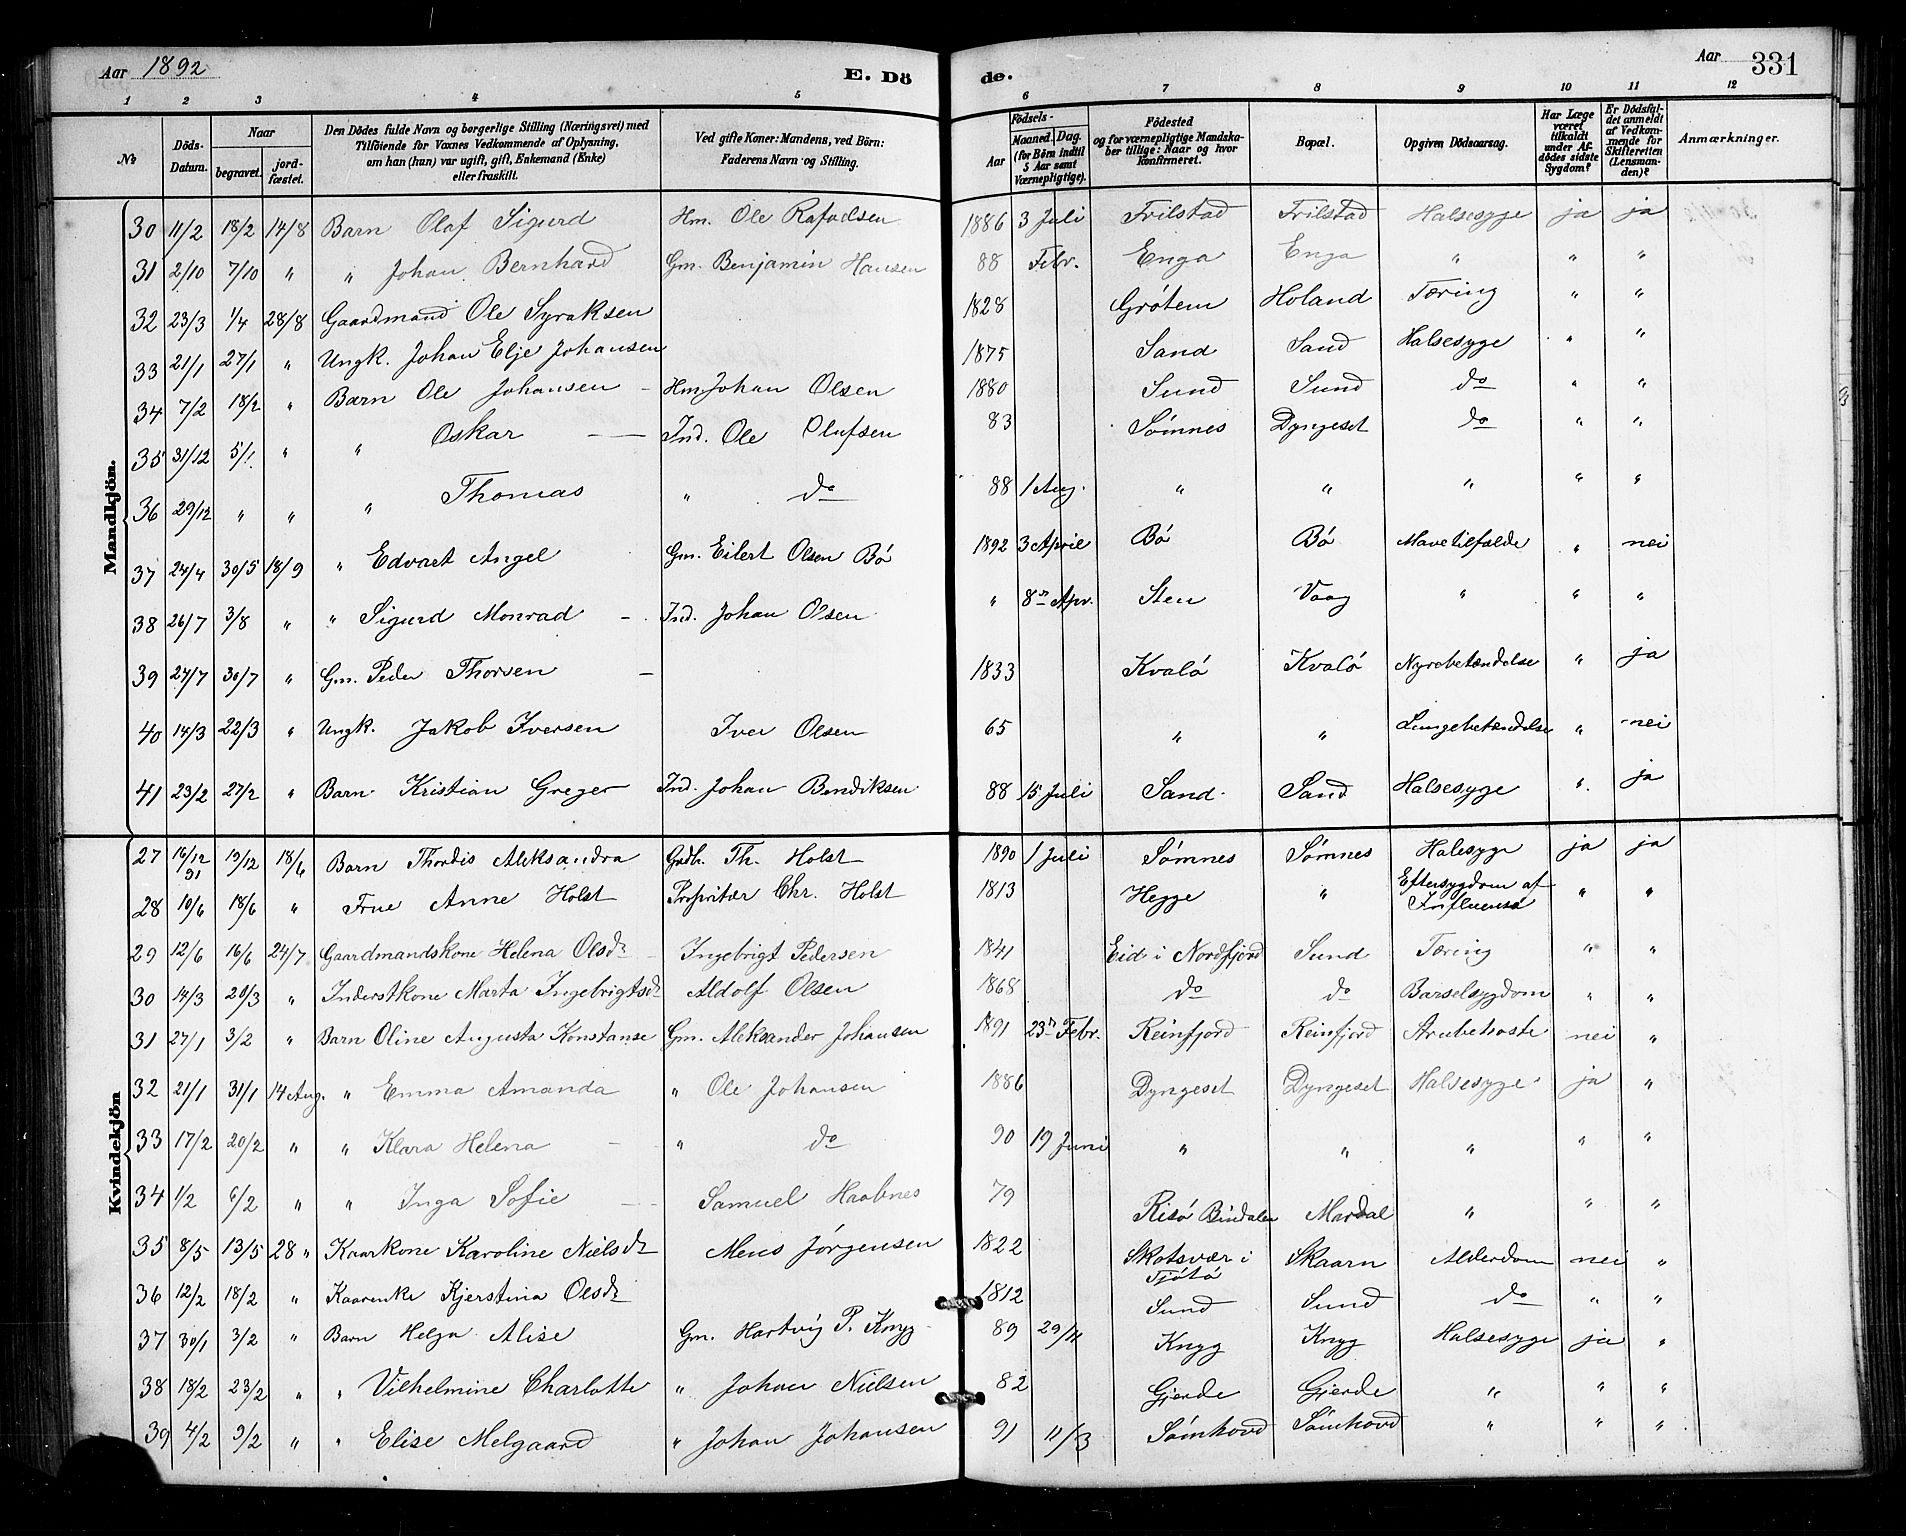 Aar 1892 E. Dö de. Aar 331
1 2 3 4 5 6 7 8 9 10 11 12
No Döds-Datum. Naar begravet. jord-fæstet. Den Dödes fulde Navn og borgerlige Stilling (Næringsvei) med Tilföiende for Voxnes Vedkommende af Oplysning, om han (hun) var ugift, gift, Enkemand (Enke) eller fraskilt. Ved gifte Koner: Mandens, ved Börn: Faderens Navn og Stilling. Födsels- Aar Maaned. Dag. (for Börn indtil 5 Aar samt Værnepligtige). Födested og for værnepligtige Mandska-ber tillige: Naar og hvor konfirmeret. Bopæl. Opgiven Dödsaarsag. Har Læge været tilkaldt under Af-dödes sidste Sygdom? Er Dödsfal-det anmeldt af Vedkom-mende for Skifteretten (Lensman-den)? Anmærkninger.
Mandkjön.
30 11/2 18/2 14/8 Barn Olaf Sigurd Hm. Ole Rafaelsen 1886 3 Juli Frilstad Frilstad Halsesyge ja ja
31 2/10 7/10 " " Johan Bernhard Gm. Benjamin Hansen 88 Febr. Enga Enga " " "
32 23/3 1/4 28/8 Gaardmand Ole Syraksen 1828 Grötem Holand Tæring " "
33 21/1 27/1 " Ungk. Johan Elje Johansen 1875 Sand Sand Halsesyge " "
34 7/2 18/2 " Barn Ole Johansen - Hm Johan Olsen 1880 Sund Sund do " "
35 31/12 5/1 " " Oskar - Ind. Ole Olufsen 83 Sømnes Dyngeset do " "
36 29/12 " " " Thomas " do 88 1 Aug. " " " " "
37 24/4 30/5 18/9 " Edvart Angel Gm. Eilert Olsen Bó 1892 3 April Bó Bó Mavetilfælde " nei
38 26/7 3/8 " " Sigurd Monrad - Ind. Johan Olsen " 8de Apr. Sten Vaag " " "
39 27/7 30/7 " Gm. Peder Thorsen - 1833 Kvaló Kvaló Nyrebetændelse " ja
40 14/3 22/3 " Ungk. Jakob Iversen Iver Olsen 65 " " Lungebetændelse " nei
41 23/2 27/2 " Barn Kristian Greger Ind. Johan Bendiksen 88 15 Juli Sand Sand Halsesyge " ja
Kvindekjön
27 16/12 91 19/12 18/6 Barn Thordis Aleksandra Gdb. Th. Holst 1890 1 Juli Sómnes Sómnes Halsesyge ja ja
28 10/6 18/6 " Frue Anne Holst Propritær Chr. Holst 1813 Hegge " Eftersygdom af Influensa " "
29 12/6 16/6 24/7 Gaardmandskone Helena Olsdr Ingebrigt Pedersen 1841 Eid i Nordfjord Sund Tæring " "
30 14/3 20/3 " Inderstkone Marta Ingebrigtsdr Aldolf Olsen 1868 do do Barselsygdom " "
31 27/1 3/2 " Barn Oline Augusta Konstanse Gm. Aleksander Johansen 1891 23de Febr. Reinfjord Reinfjord Strubehoste nei "
32 21/1 31/1 14 Aug. " Emma Amanda " Ole Johansen 1886 Dyngeset Dyngeset Halsesyge ja "
33 17/2 20/2 " " Klara Helena - " do 90 19 Juni " " " " "
34 1/2 6/2 " " Inga Sofie - Samuel Haabnes 79 Risó Bindalen Mardal " " "
35 8/5 13/5 28 " Kaarkone Karoline Nielsdr Mens Jörgensen 1822 Skotsvær i Tjótó Skaarn Alderdom nei "
36 12/2 18/2 " Kaarenke Kjerstina Olsdr 1812 Sund Sund do " "
37 30/1 3/2 " Barn Helga Alise Gm. Hartvig P. Knyg 89 29/11 Knyg Knyg Halsesyge ja "
38 18/2 23/2 " " Vilhelmine Charlotte " Johan Nielsen 82 Gjerde Gjerde " " "
39 4/2 9/2 " " Elise Melgaard " Johan Johansen 91 11/3 Sómhovd Sómhovd " " "